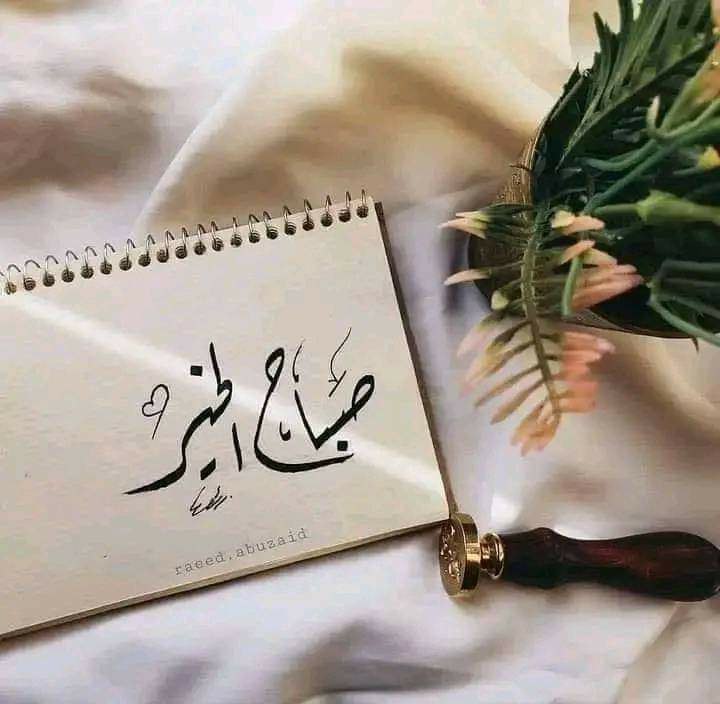 صباح الخير
raeed.abuzaid